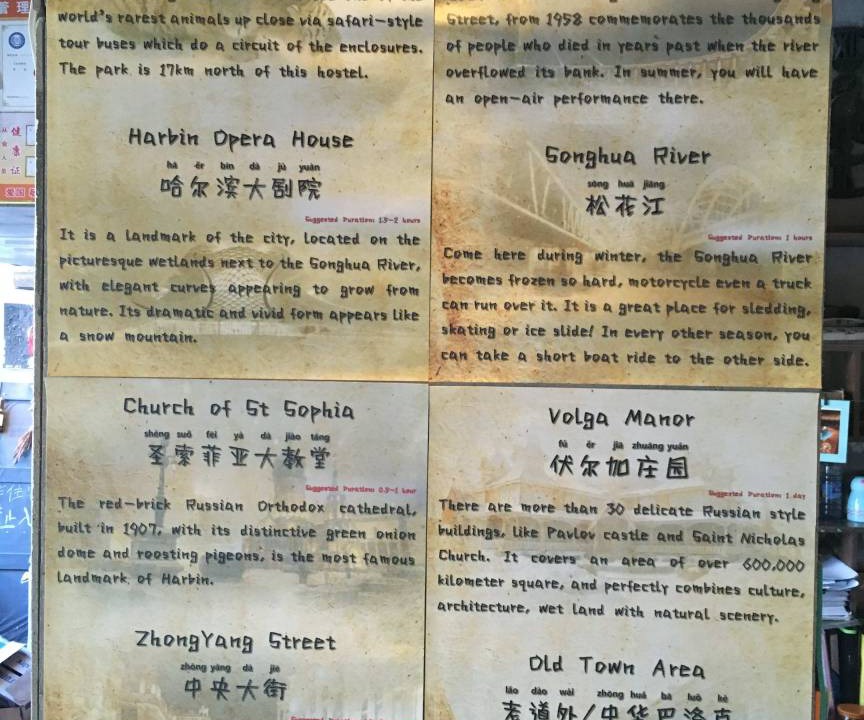 world's rarest animals up close via safari-style
tour buses which do a circuit of the enclosures.
The park is 17km north of this hostel.
Harbin Opera House
hā ěr bīn dà jù yuàn
哈尔滨大剧院
Suggested Duration: 1.5-2 hours
It is a landmark of the city, located on the
picturesque wetlands next to the Songhua River,
with elegant curves appearing to grow from
nature. Its dramatic and vivid form appears like
a snow mountain.
Church of St Sophia
shèng suǒ fēi yà dà jiào táng
圣索菲亚大教堂
Suggested Duration: 0.5-1 hour
The red-brick Russian Orthodox cathedral,
built in 1907, with its distinctive green onion
dome and roosting pigeons, is the most famous
landmark of Harbin.
ZhongYang Street
zhōng yāng dà jiē
中央大街
Street, from 1958 commemorates the thousands
of people who died in years past when the river
overflowed its bank. In summer, you will have
an open-air performance there.
Songhua River
sōng huā jiāng
松花江
Suggested Duration: 1 hours
Come here during winter, the Songhua River
becomes frozen so hard, motorcycle even a truck
can run over it. It is a great place for sledding,
skating or ice slide! In every other season, you
can take a short boat ride to the other side.
Volga Manor
fú ěr jiā zhuāng yuán
伏尔加庄园
Suggested Duration: 1 day
There are more than 30 delicate Russian style
buildings, like Pavlov castle and Saint Nicholas
Church. It covers an area of over 600,000
kilometer square, and perfectly combines culture,
architecture, wet land with natural scenery.
Old Town Area
lǎo dào wài zhōng huá bā luò kè
老道外/中华巴洛克
管理
健康证